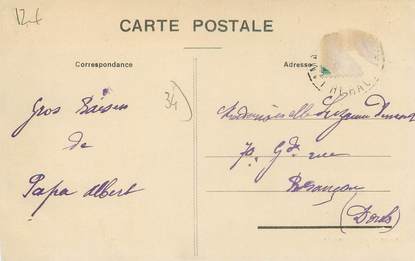 CARTE POSTALE
Correspondance
Adresse
34
Gros Baisers
de
Papa Albert
Mademoiselle Suzanne
70 Gde rue
Besançon
(Doubs)